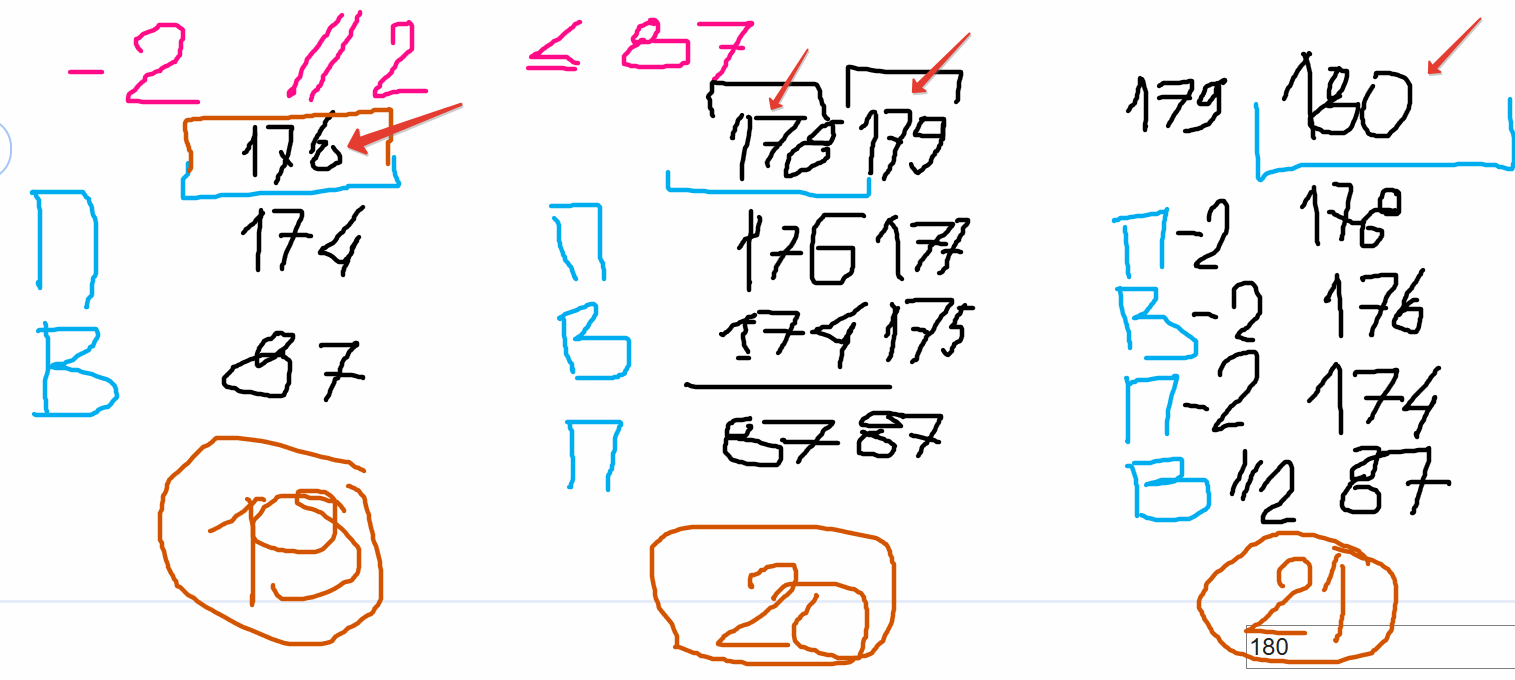 -2 //2 ≤ 87
176
П 174
В 87
19
178 179
П 176 177
В 174 175
П 87 87
20
179 180
П-2 178
В-2 176
П-2 174
В //2 87
21
180